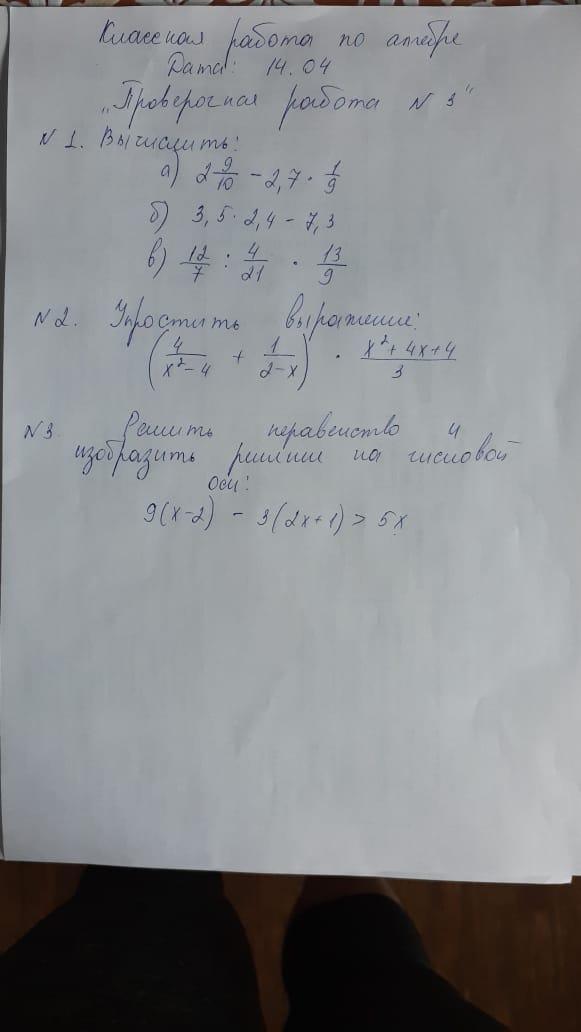 Классная работа по алгебре
Дата: 14.04
„Проверочная работа N 3"
N 1. Вычислить:
а) 2 9/10 - 2,7 · 1/9
б) 3,5 · 2,4 - 7,3
в) 12/7 : 4/21 · 13/9
N 2. Упростить выражение:
(4/(x²-4) + 1/(2-x)) · (x²+4x+4)/3
N 3. Решить неравенство и
изобразить решение на числовой
оси:
9(x-2) - 3(2x+1) > 5x